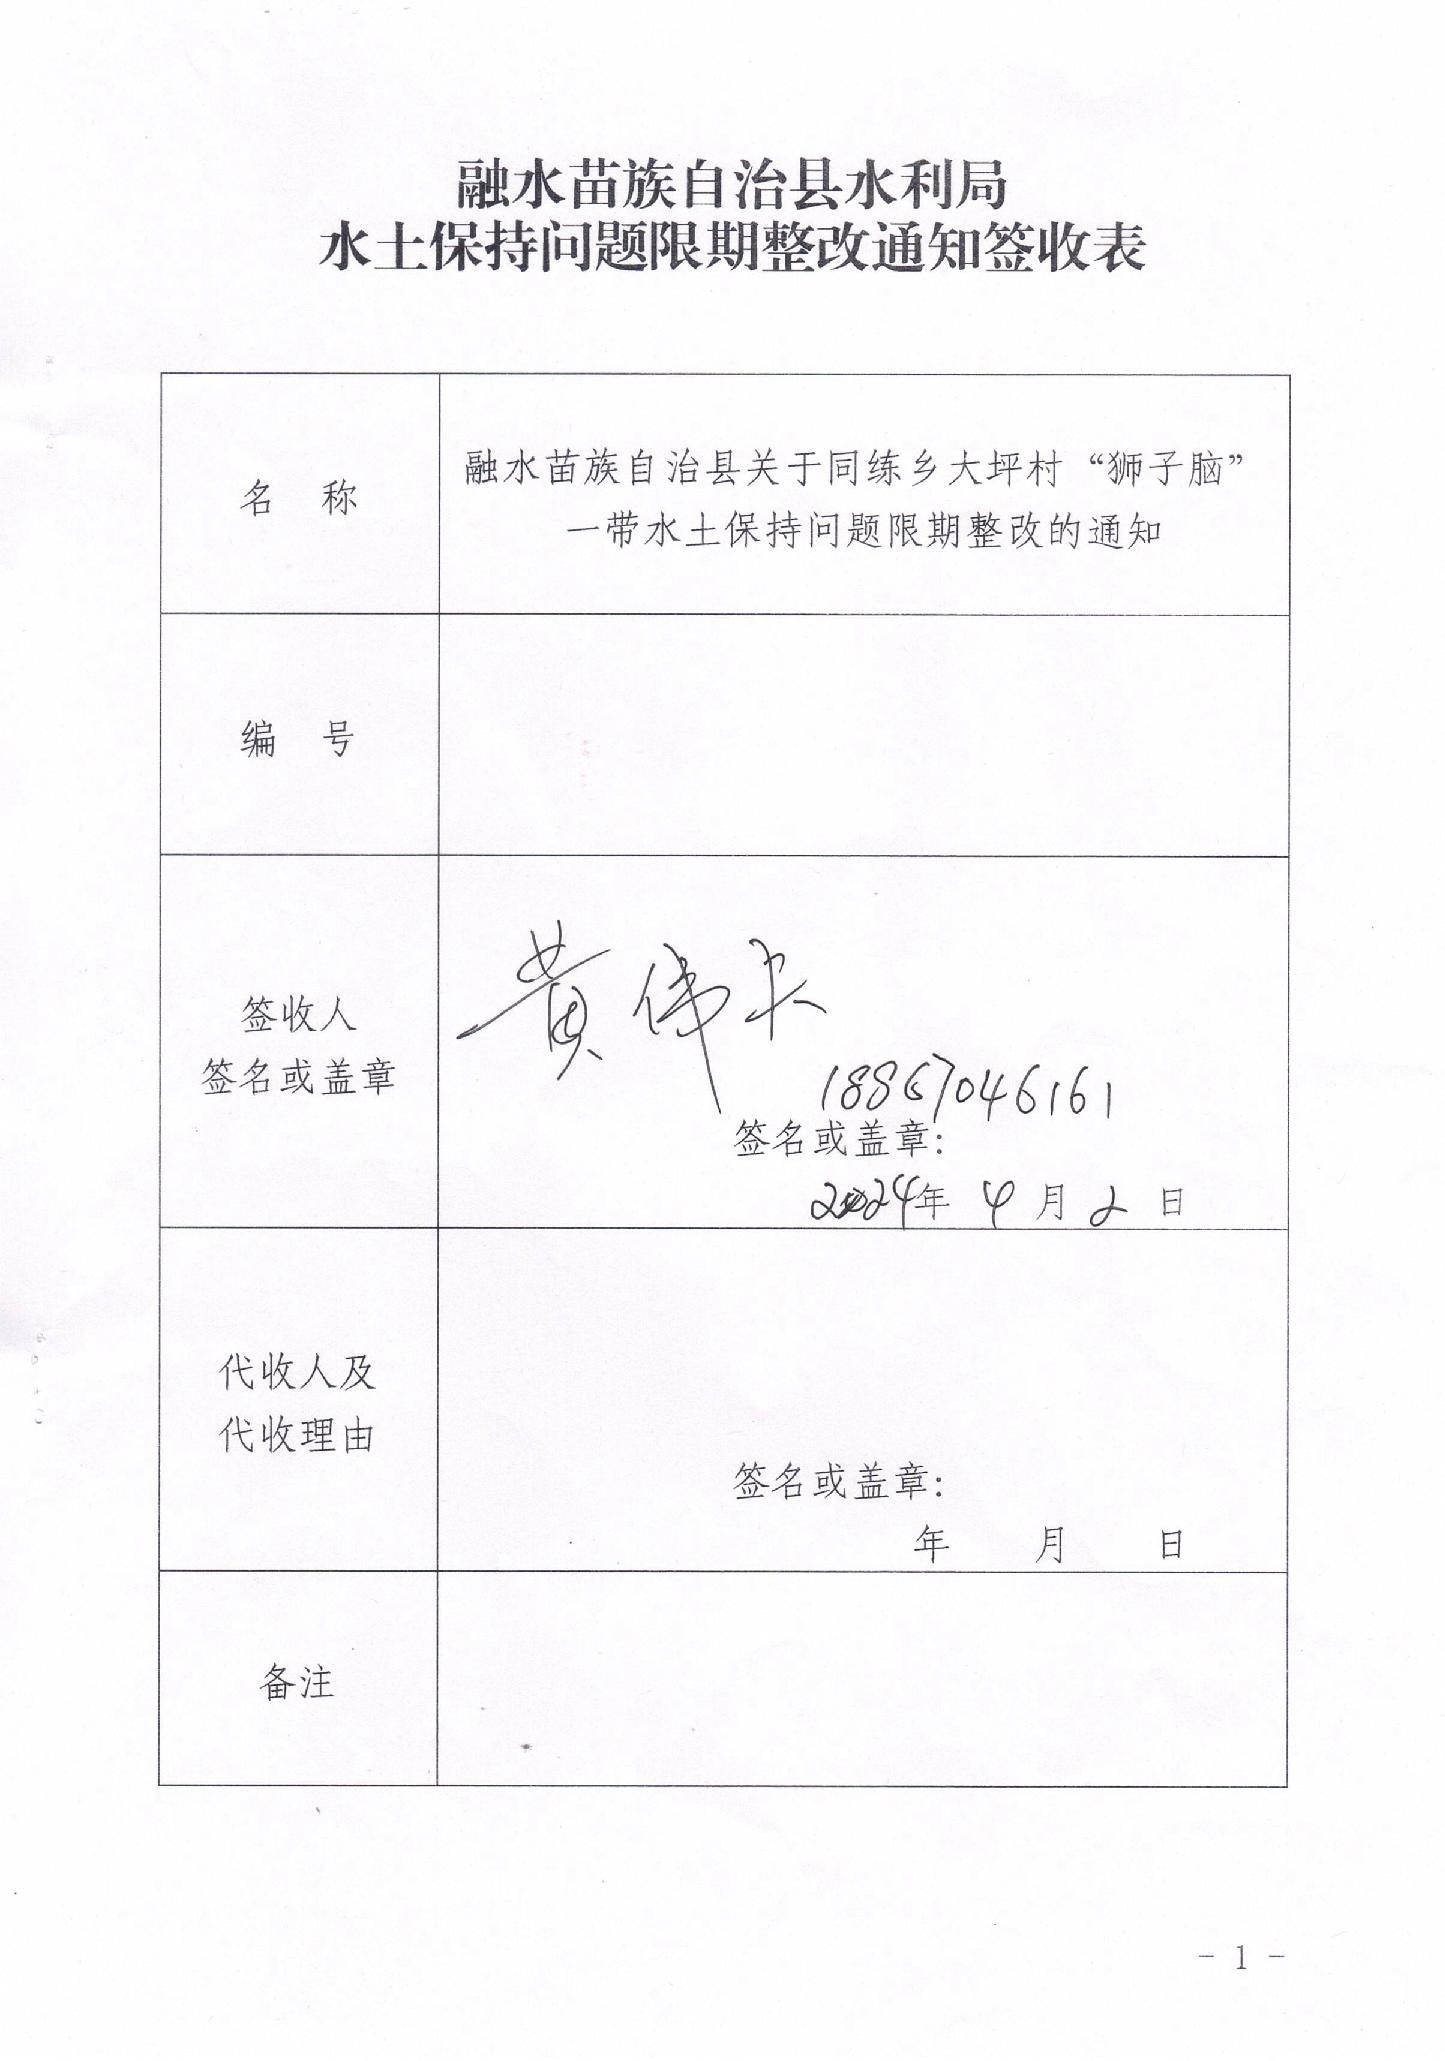 融水苗族自治县水利局
水土保持问题限期整改通知签收表
名 称
融水苗族自治县关于同练乡大坪村“狮子脑”
一带水土保持问题限期整改的通知
编 号
签收人
签名或盖章
黄伟
18867046161
签名或盖章：
2024年 4月 2 日
代收人及
代收理由
签名或盖章：
年 月 日
备注
- 1 -